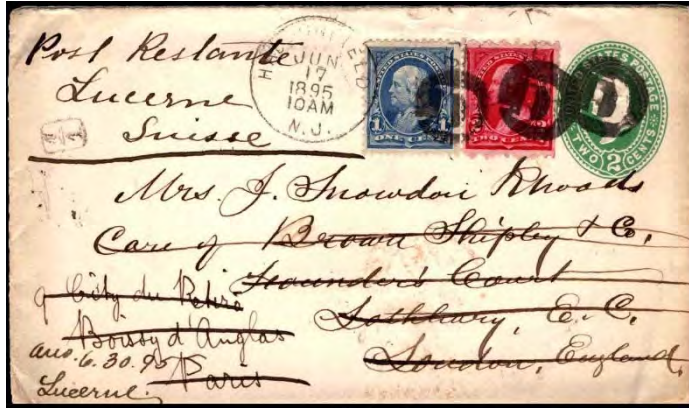 Post Restante
Lucerne
Suisse
HADDONFIELD
JUN
17
1895
10AM
N. J.
UNITED STATES POSTAGE
1 1
ONE CENT
TWO CENTS
UNITED STATES POSTAGE
TWO 2 CENTS
Mrs. J. Snowdon Rhoads
Care of Brown Shipley & Co.
Founders Court
Lothbury, E. C.
London, England,
9 City du Retiro
Boissy d'Anglas
Paris
ans. 6.30.95
Lucerne.